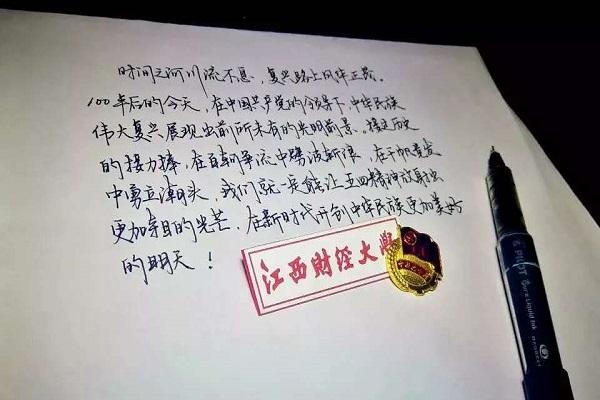 时间之河川流不息，复兴路上风华正茂。
100年后的今天，在中国共产党的领导下，中华民族
伟大复兴展现出前所未有的光明前景，接过历史
的接力棒，在百舸争流中搏波斩浪，在千帆竞发
中勇立潮头，我们就一定能让五四精神放射出
更加夺目的光芒，在新时代开创中华民族更加美好
的明天！
江西财经大学
PILOT
Pure Liquid Ink